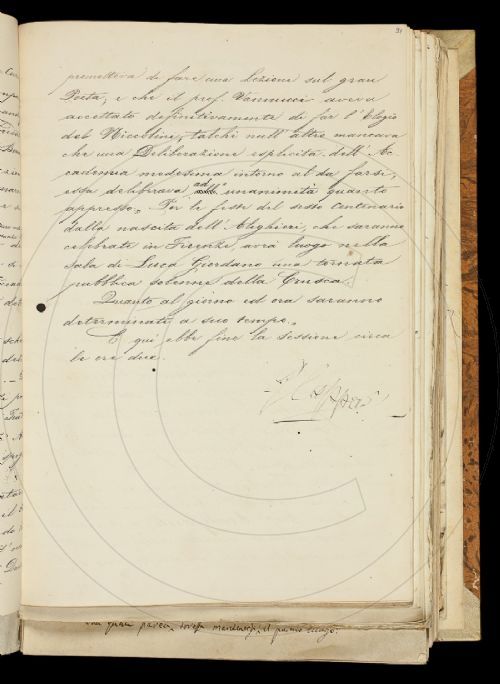 31
prometteva di fare una Lezione sul gran
Poeta, e che il prof. Vannucci aveva
accettato definitivamente di far l'Elogio
del Niccolini, talchè null'altro mancava
che una Deliberazione esplicita dell'Ac-
cademia medesima intorno al da farsi,
essa deliberava ad unanimità quanto
appresso. Per le feste del sesto Centenario
dalla nascita dell'Alighieri, che saranno
celebrate in Firenze, avrà luogo nella
Sala di Luca Giordano una tornata
pubblica solenne della Crusca.
Quanto al giorno ed ora saranno
determinati a suo tempo.
E qui ebbe fine la Sessione circa
le ore due.
una gran parte, dovesse